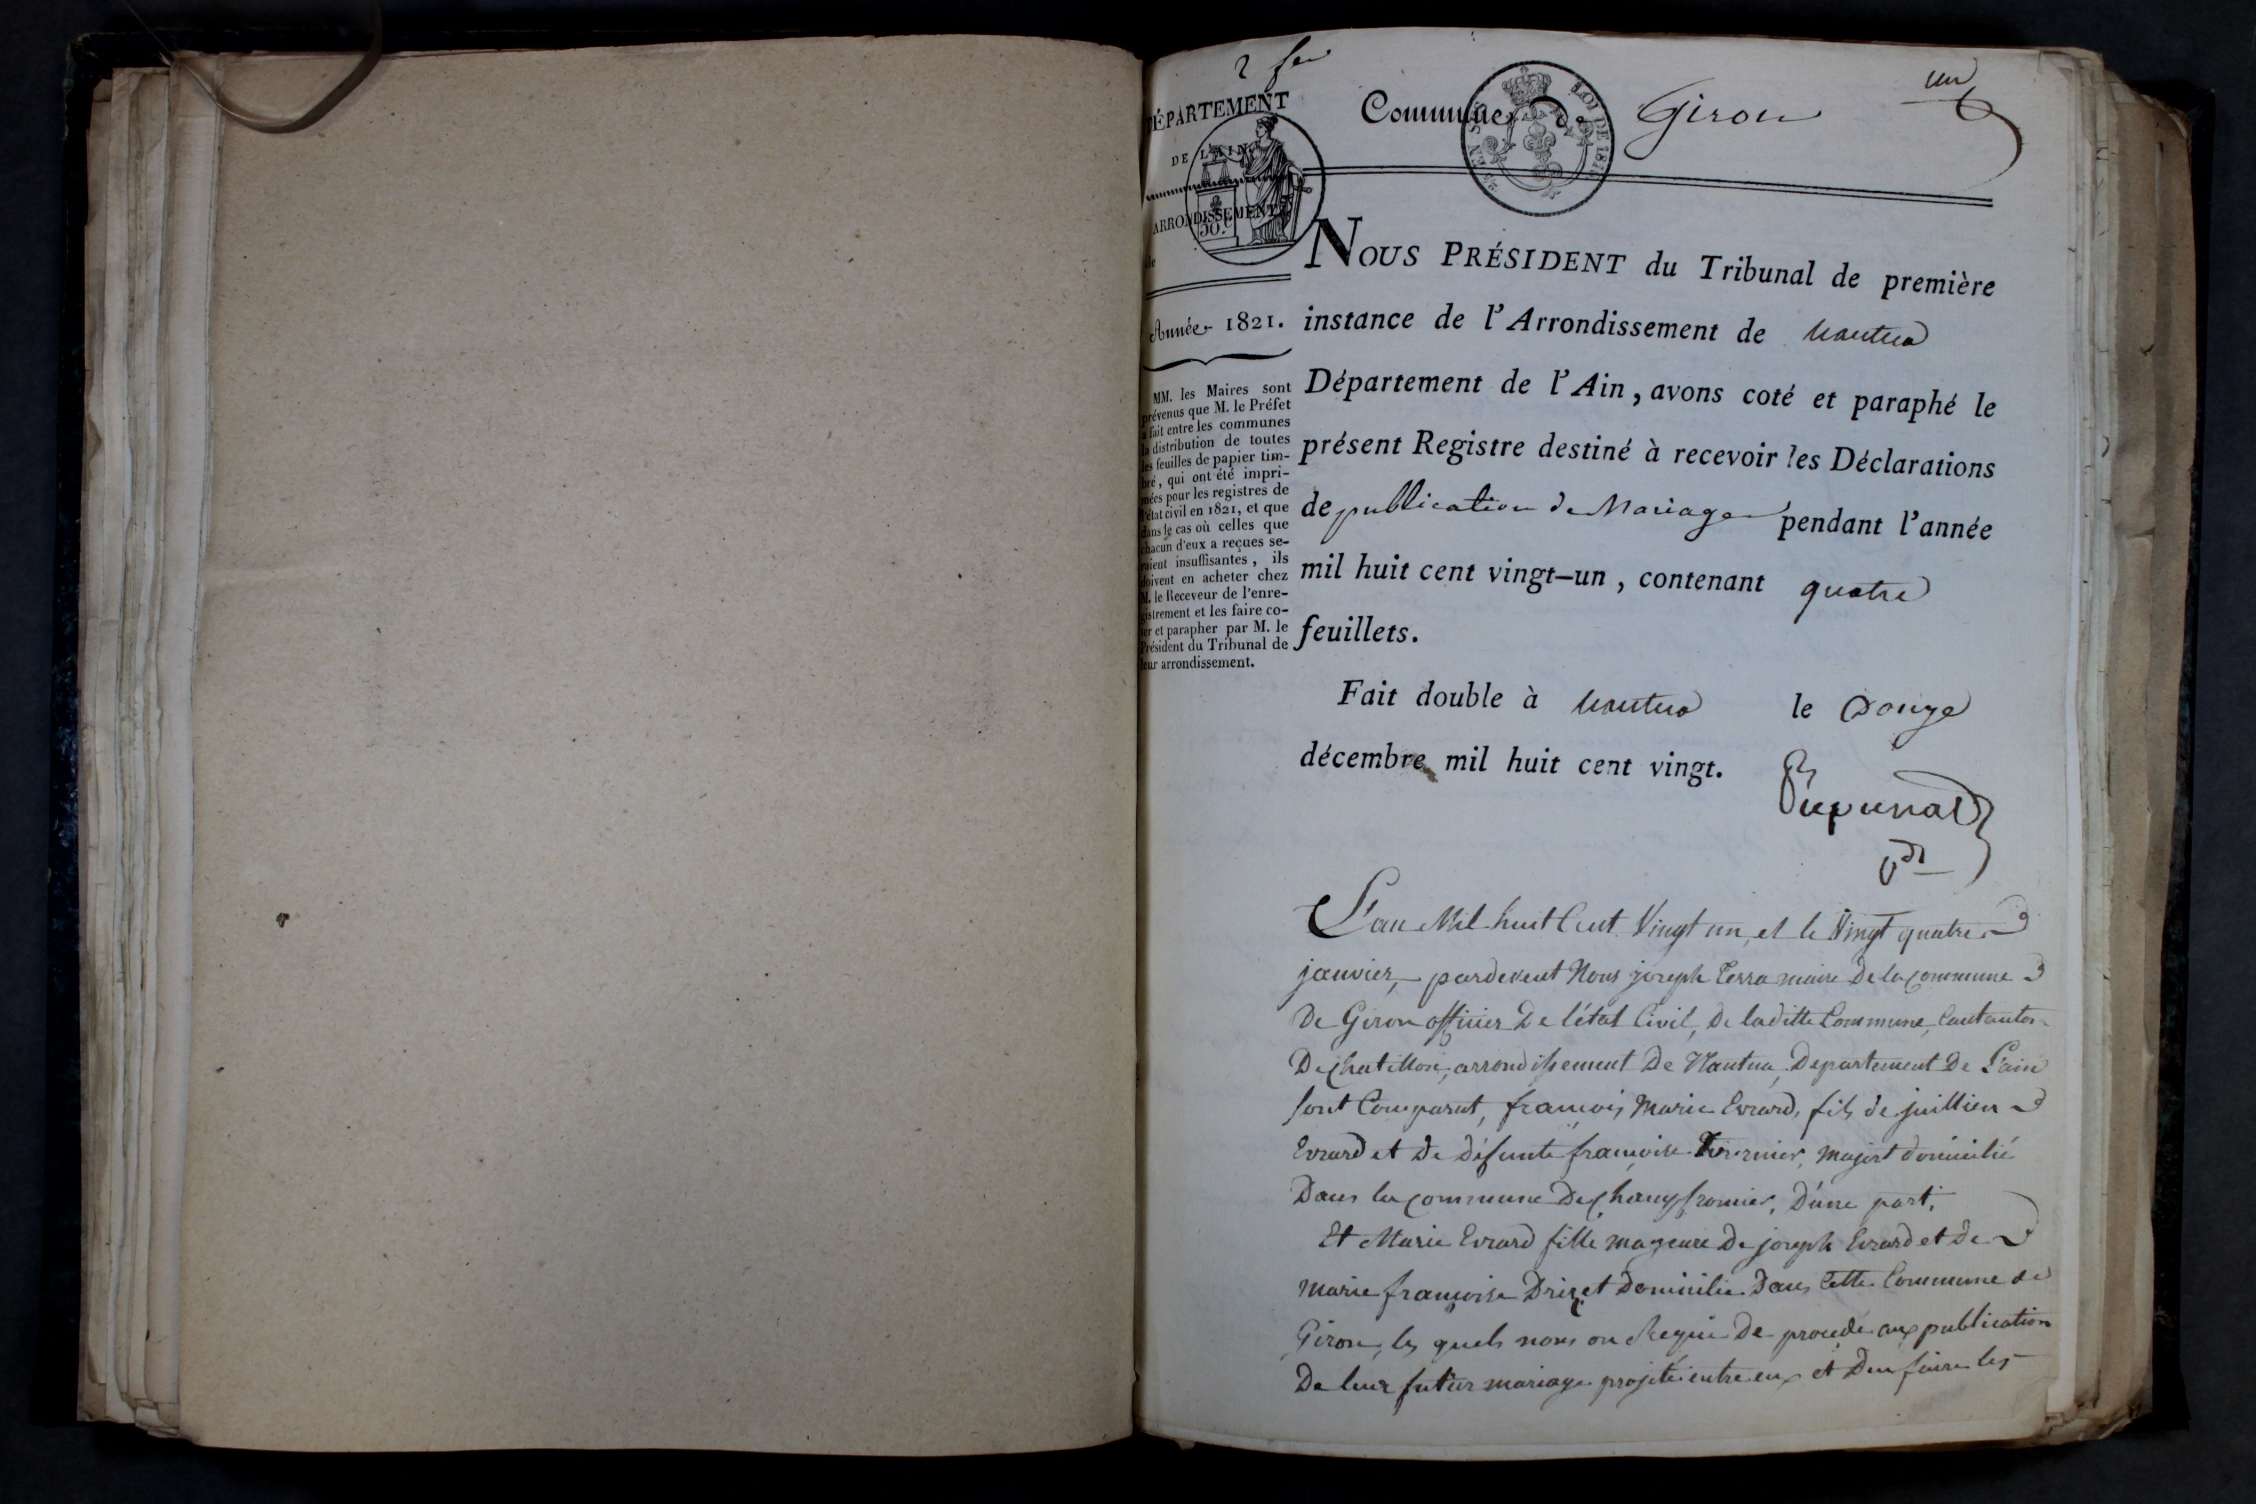 2 fer
DÉPARTEMENT
DE L'AIN.
ARRONDISSEMENT
30.C
de
Année 1821.
MM. les Maires sont
prévenus que M. le Préfet
a fait entre les communes
la distribution de toutes
les feuilles de papier tim-
bré, qui ont été impri-
mées pour les registres de
l'état civil en 1821, et que
dans le cas où celles que
chacun d'eux a reçues se-
raient insuffisantes, ils
doivent en acheter chez
M. le Receveur de l'enre-
gistrement et les faire co-
ter et parapher par M. le
Président du Tribunal de
leur arrondissement.
Commune de Giron
LOI DE 1816
un
NOUS PRÉSIDENT du Tribunal de première
instance de l'Arrondissement de Nantua
Département de l'Ain, avons coté et paraphé le
présent Registre destiné à recevoir les Déclarations
de publication de Mariage pendant l'année
mil huit cent vingt-un, contenant quatre
feuillets.
Fait double à Nantua le Douze
décembre mil huit cent vingt.
L'an Mil huit Cent Vingt un, et le Vingt quatre
janvier, pardevent Nous joseph Terra maire De la commune
De Giron officier De l'état Civil, De laditte Commune, Cantanton
De Chatillon, arrondissement De Nantua, Departement De L'ain
sont Comparut, françois Marie Evrard, fils de juillien
Evrard et De Défunte françoise Tournier, majert domicilié
Dans la commune De Champfromier, D'une part,
Et Marie Evrard fille mageure De joseph Evrard et de
marie françoise Drizet Domicilie Dans Cette Commune de
Giron, les quels nous on Requi De procédé aux publication
De leur futur mariage projeté entre eux et Den faire les